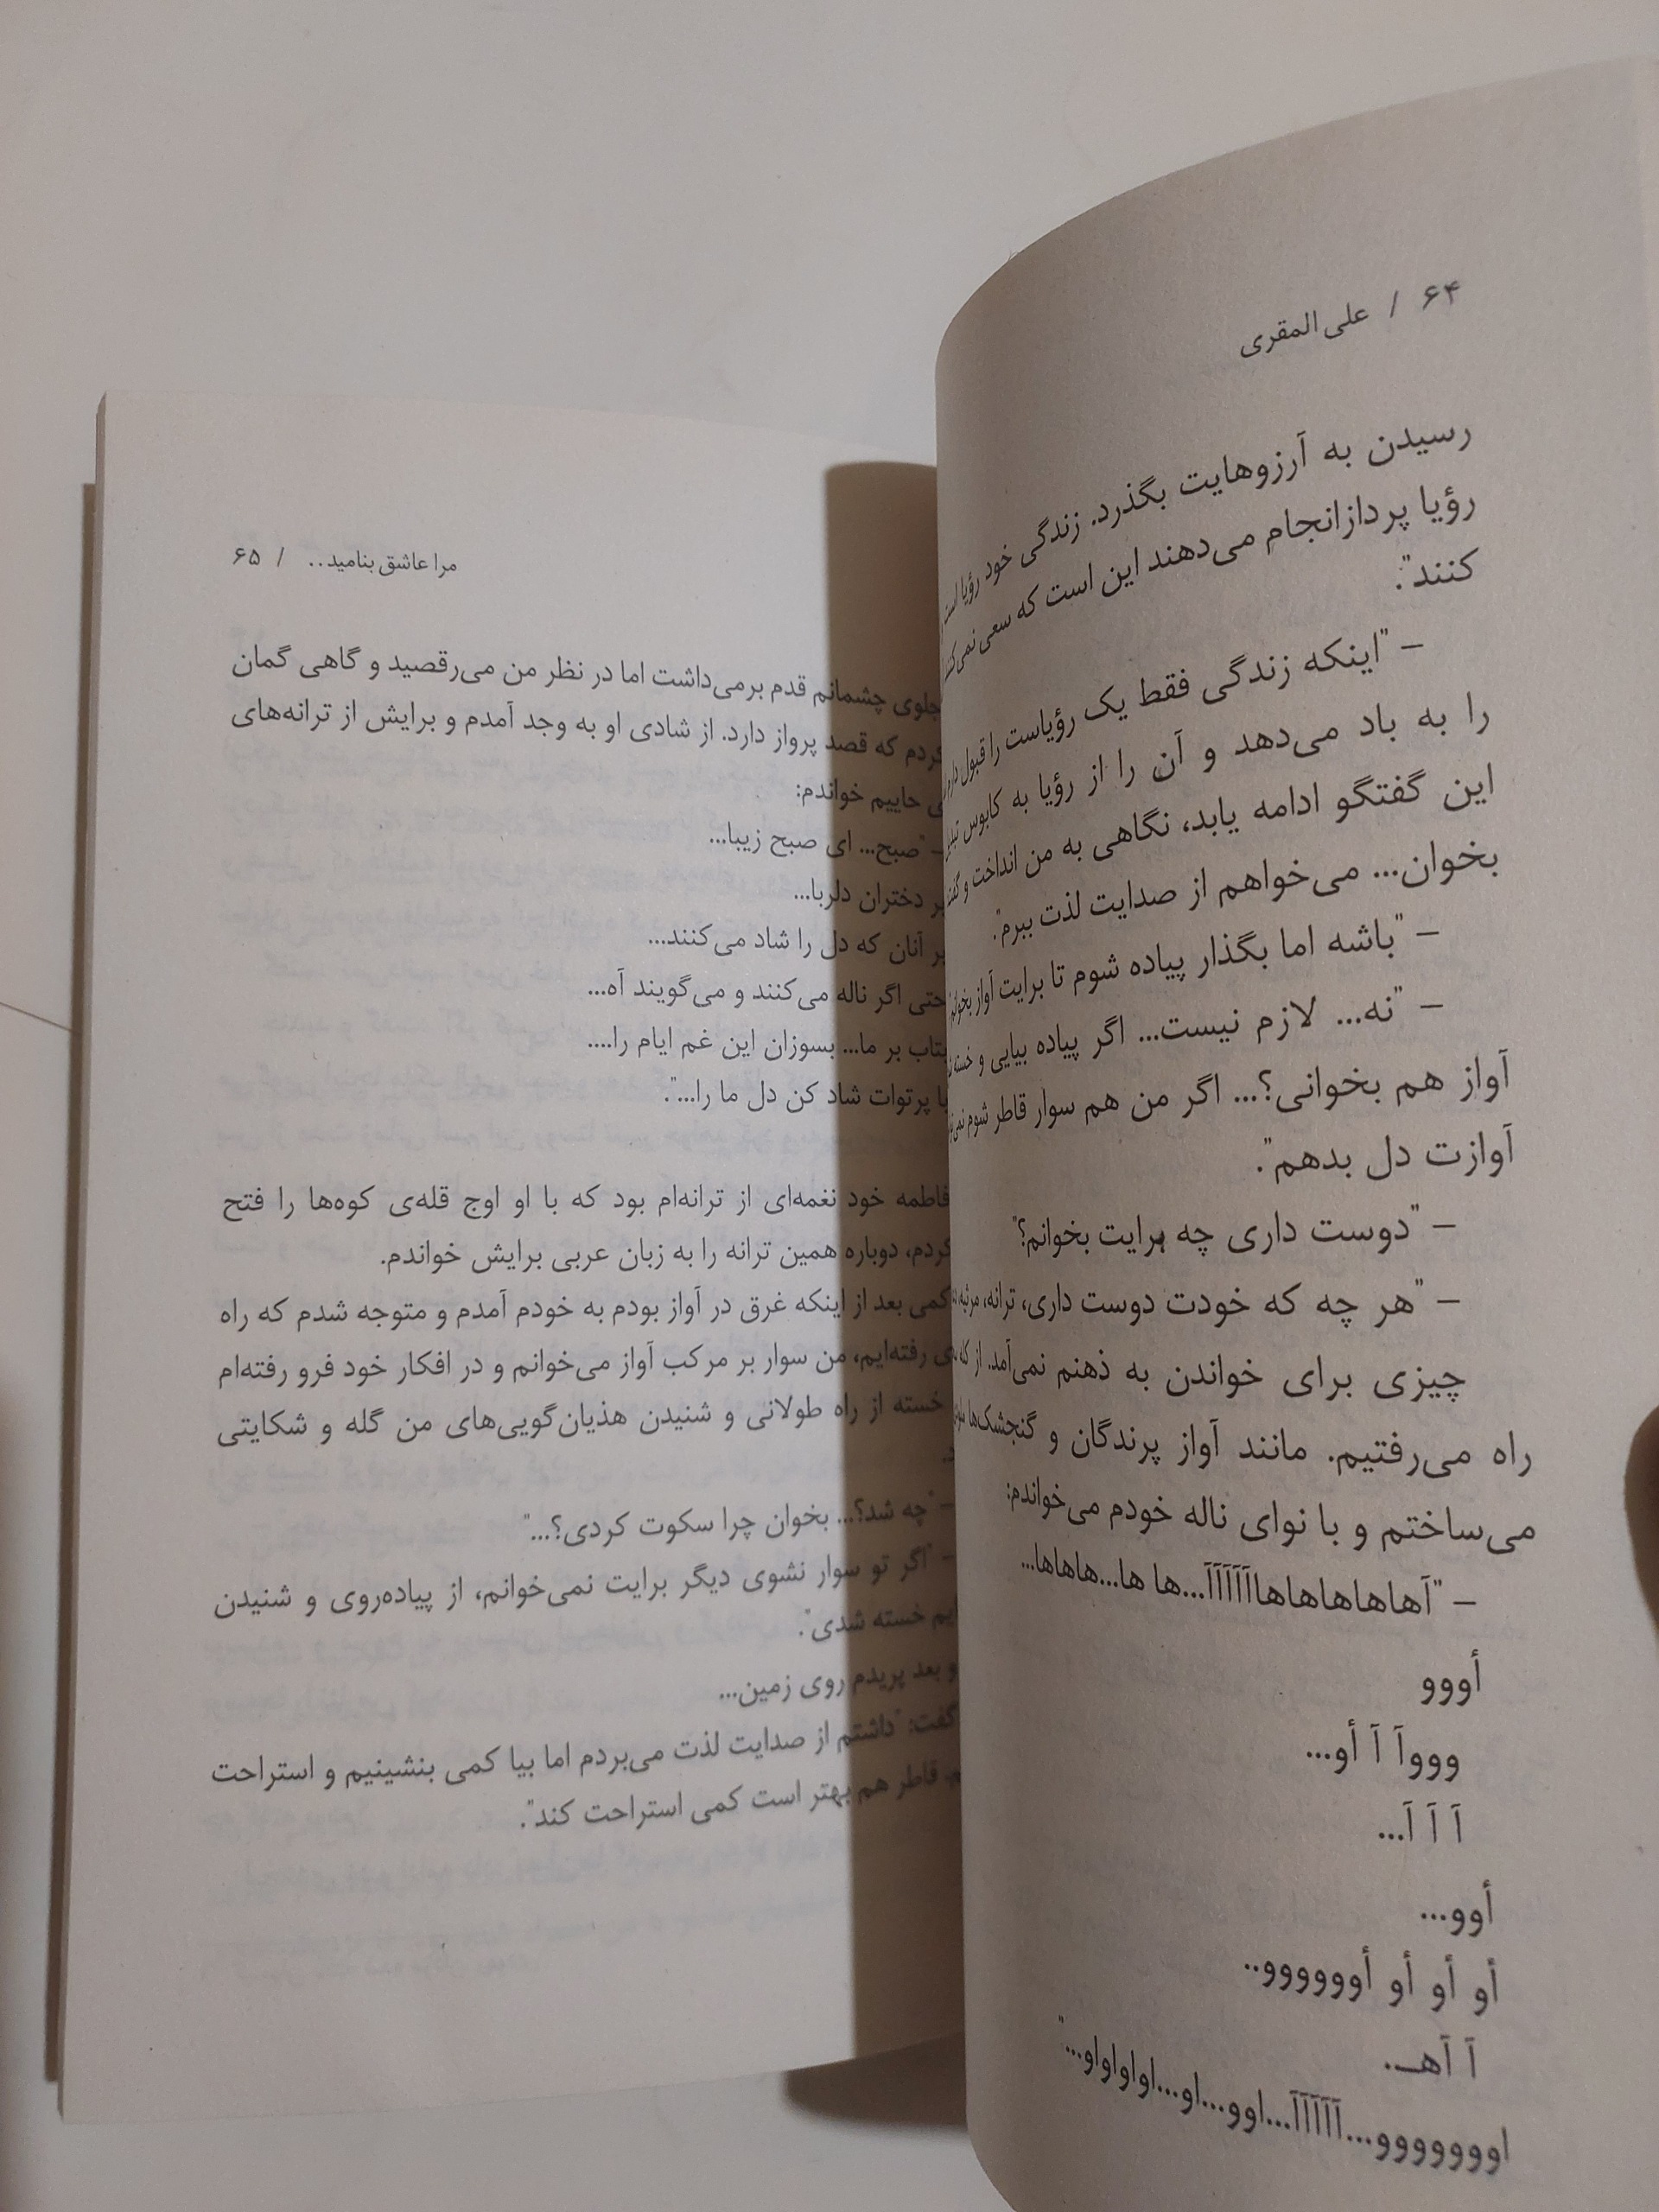 ۶۴ / علی المقری
رسیدن به آرزوهایت بگذرد. زندگی خود رؤیا است
رؤیا پردازانجام می‌دهند این است که سعی نمی‌کنند
کنند".
– "اینکه زندگی فقط یک رؤیاست را قبول دارم
را به باد می‌دهد و آن را از رؤیا به کابوس
این گفتگو ادامه یابد، نگاهی به من انداخت و
بخوان... می‌خواهم از صدایت لذت ببرم".
– "باشه اما بگذار پیاده شوم تا برایت آواز بخوانم
– "نه... لازم نیست... اگر پیاده بیایی و خسته
آواز هم بخوانی؟... اگر من هم سوار قاطر شوم
آوازت دل بدهم".
– "دوست داری چه برایت بخوانم؟"
– "هر چه که خودت دوست داری، ترانه،
چیزی برای خواندن به ذهنم نمی‌آمد. از
راه می‌رفتیم. مانند آواز پرندگان و گنجشک‌ها
می‌ساختم و با نوای ناله خودم می‌خواندم:
– "آهاهاهاهاهاآآآآآ...ها ها...هاهاها...
أووو
وووآ آ أو...
آ آ آ...
أوو...
أو أو أو أووووووو..
آ آهـ..
اوووووووو...آآآآآ...اوو...او...اواواواو..."
مرا عاشق بنامید.. / ۶۵
جلوی چشمانم قدم برمی‌داشت اما در نظر من می‌رقصید و گاهی گمان
کردم که قصد پرواز دارد. از شادی او به وجد آمدم و برایش از ترانه‌های
حاییم خواندم:
– "صبح... ای صبح زیبا...
بر دختران دلربا...
بر آنان که دل را شاد می‌کنند...
حتی اگر ناله می‌کنند و می‌گویند آه...
بتاب بر ما... بسوزان این غم ایام را....
با پرتوات شاد کن دل ما را...".
فاطمه خود نغمه‌ای از ترانه‌ام بود که با او اوج قله‌ی کوه‌ها را فتح
کردم، دوباره همین ترانه را به زبان عربی برایش خواندم.
کمی بعد از اینکه غرق در آواز بودم به خودم آمدم و متوجه شدم که راه
رفته‌ایم، من سوار بر مرکب آواز می‌خوانم و در افکار خود فرو رفته‌ام
خسته از راه طولانی و شنیدن هذیان‌گویی‌های من گله و شکایتی
– "چه شد؟... بخوان چرا سکوت کردی؟..."
– "اگر تو سوار نشوی دیگر برایت نمی‌خوانم، از پیاده‌روی و شنیدن
خسته شدی".
و بعد پریدم روی زمین...
گفت: "داشتم از صدایت لذت می‌بردم اما بیا کمی بنشینیم و استراحت
قاطر هم بهتر است کمی استراحت کند".